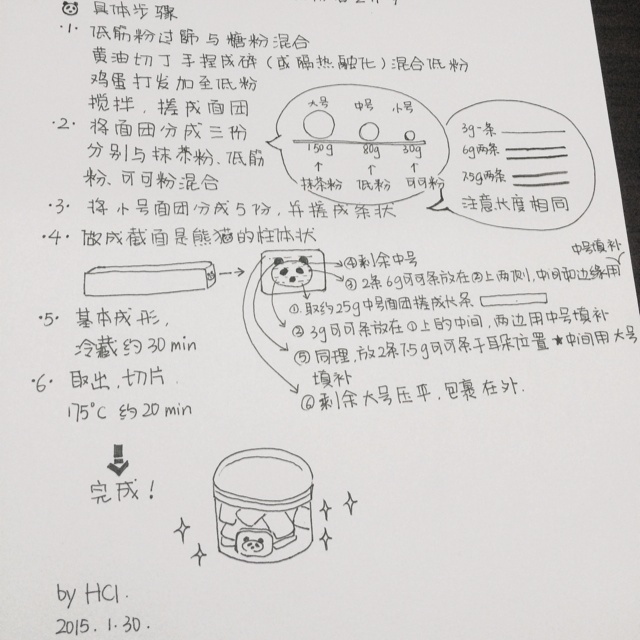 具体步骤
·1· 低筋粉过筛与糖粉混合
黄油切丁手捏成砖(或隔热融化)混合低粉
鸡蛋打发加至低粉
搅拌,搓成面团
·2· 将面团分成三份
分别与抹茶粉、低筋
粉、可可粉混合
大号 中号 小号
150g 80g 30g
抹茶粉 低粉 可可粉
3g一条
6g两条
7.5g两条
注意长度相同
·3· 将小号面团分成5份,并搓成条状
·4· 做成截面是熊猫的柱体状
④剩余中号
中号填补
③ 2条6g可可条放在②上两侧,中间和边缘用
① 取约25g中号面团搓成长条
② 3g可可条放在①上的中间,两边用中号填补
⑤ 同理,放2条7.5g可可条于耳朵位置 ★中间用大号
填补
⑥ 剩余大号压平,包裹在外.
·5· 基本成形,
冷藏约30min
·6· 取出,切片.
175℃ 约20min
完成!
by HCl.
2015.1.30.